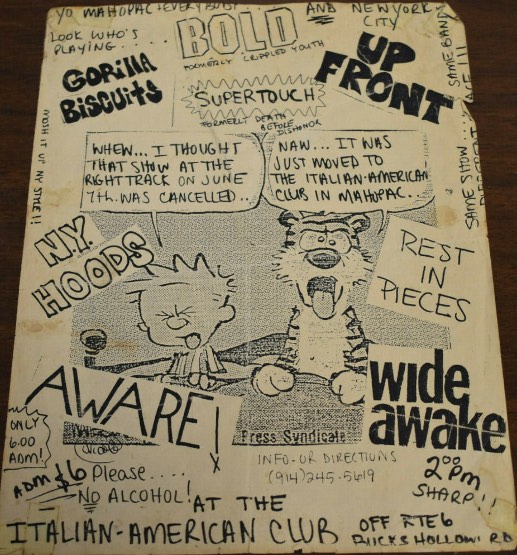 YO MAHOPAC (EVERYBODY
AND NEW YORK
CITY
LOOK WHO'S
PLAYING.....
BOLD
FORMERLY CRIPPLED YOUTH
UP
FRONT
GORILLA
BISCUITS
SUPERTOUCH
FORMERLY DEATH
BEFORE
DISHONOR
SAME BAND
SAME SHOW..
PLACE!!!
MOSH IT UP NY STYLE!!
WHEW... I THOUGHT
THAT SHOW AT THE
RIGHT TRACK ON JUNE
7th. WAS CANCELLED..
NAW... IT WAS
JUST MOVED TO
THE ITALIAN-AMERICAN
CLUB IN MAHOPAC..
N.Y.
HOODS
REST
IN
PIECES
AWARE!
wide
awake
Press Syndicate
ONLY
6.00
ADM!
INFO-OR DIRECTIONS
(914) 245-5619
ADM $6 Please....
NO ALCOHOL!
2:00 PM
SHARP!!
AT THE
ITALIAN-AMERICAN CLUB
OFF RTE 6
HOLLOW RD